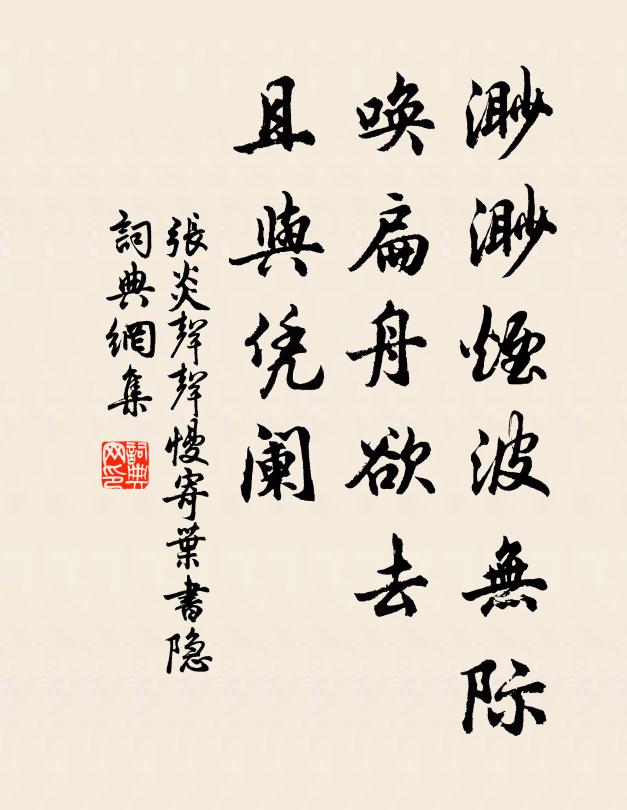 渺渺煙波無际
唤扁舟欲去
且與凭阑
張炎聲聲慢寄葉書隐
詞典網集
詞典網印